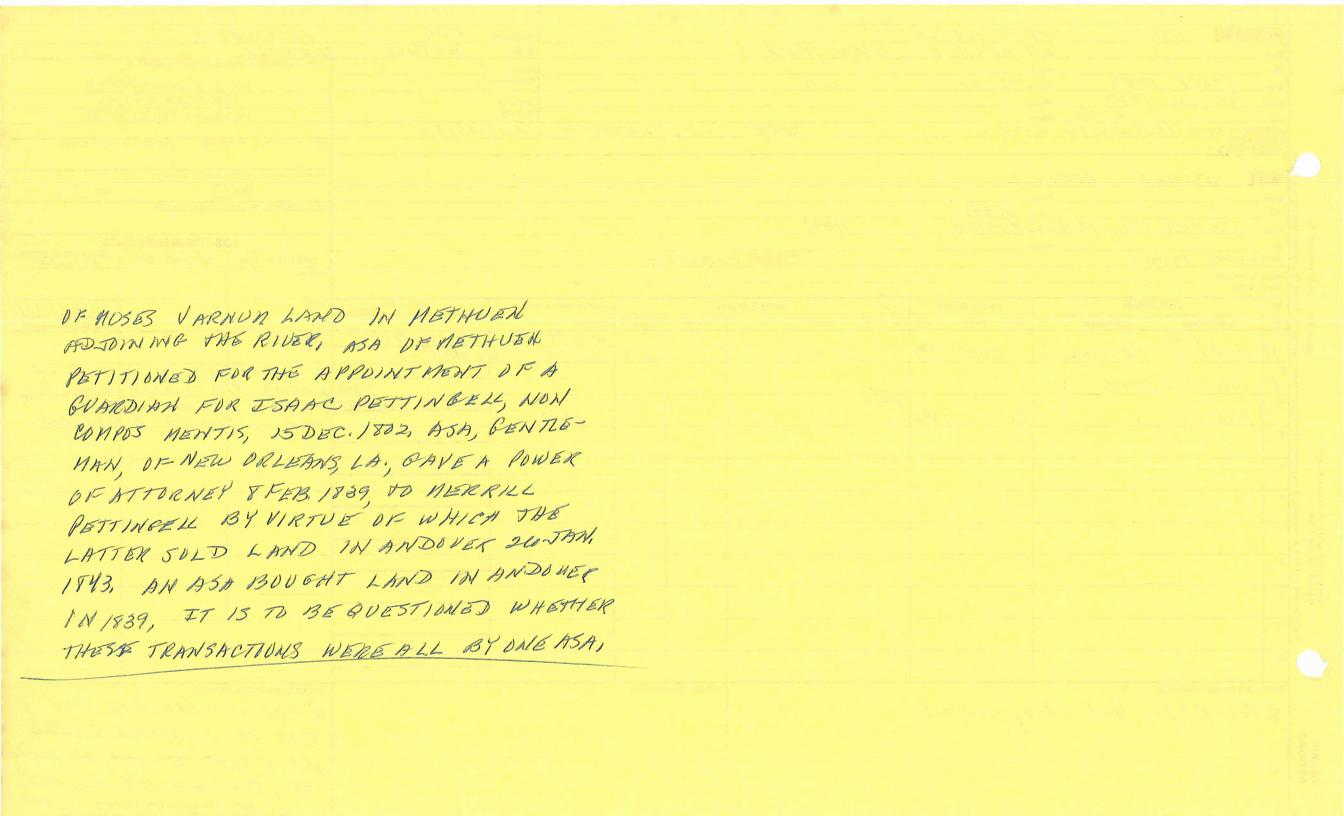 OF MOSES VARNUM LAND IN METHUEN
ADJOINING THE RIVER, ASA OF METHUEN
PETITIONED FOR THE APPOINTMENT OF A
GUARDIAN FOR ISAAC PETTINGELL, NON
COMPOS MENTIS, 15 DEC. 1802. ASA, GENTLE-
MAN, OF NEW ORLEANS, LA., GAVE A POWER
OF ATTORNEY 8 FEB. 1839, TO MERRILL
PETTINGELL BY VIRTUE OF WHICH THE
LATTER SOLD LAND IN ANDOVER 26 JAN.
1843. AN ASA BOUGHT LAND IN ANDOVER
IN 1839, IT IS TO BE QUESTIONED WHETHER
THESE TRANSACTIONS WERE ALL BY ONE ASA,